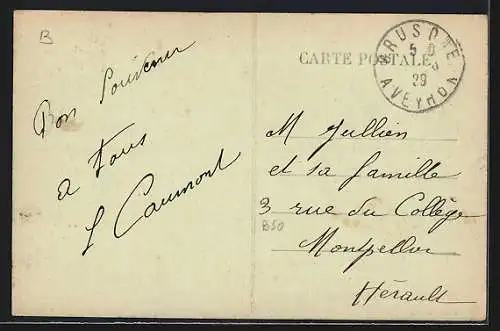 B
Bon Souvenir
a tous
L Caumont
CARTE POSTALE
BRUSQUE
5 6
29
AVEYRON
M Jullien
et sa famille
3 rue du Collège
Montpellier
Hérault
B50